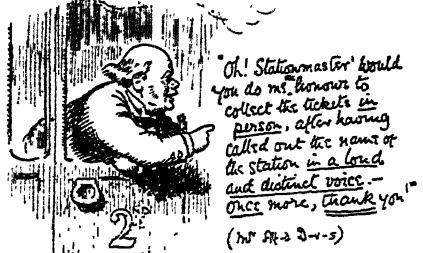 "Oh! Stationmaster! Would
you do me the honour to
collect the tickets in
person, after having
called out the name of
the station in a loud
and distinct voice.—
Once more, thank you!"
(Mr Alf-d D-v-s)
2ND